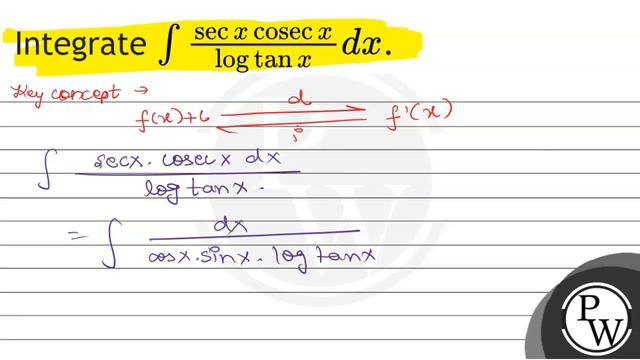 Integrate ∫ sec x cosec x / log tan x dx.
Key concept →
f(x)+c ⇌ f'(x)
d
i
∫ secx. cosecx dx / log tanx.
= ∫ dx / cosx. sinx. log tanx
P
W